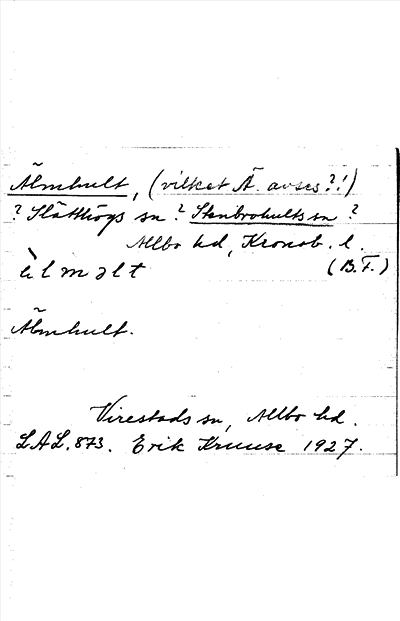 Älmhult, (vilket Ä. avses?!)
? Slätthögs sn ? Stenbrohults sn ?
Allbo hd, Kronob. l.
èlməlt (B.F.)
Älmhult.
Virestads sn, Allbo hd.
LAL. 873. Erik Kruuse 1927.